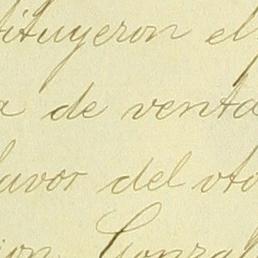 tituyeron el
a de venta
favor del oto
ion Gonzal